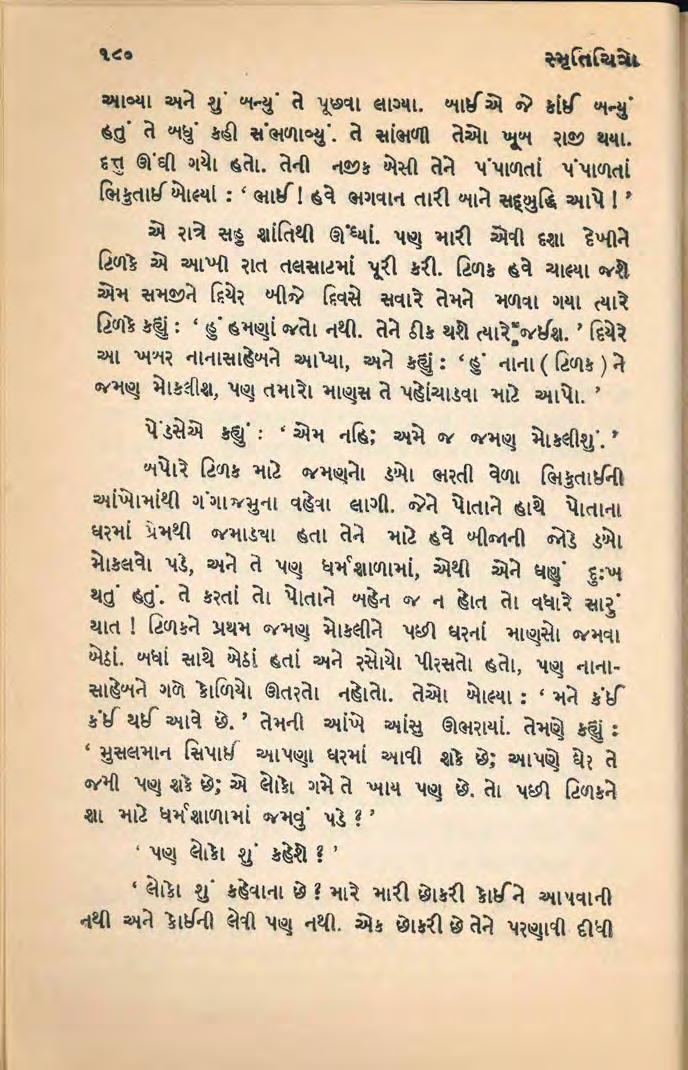 ૧૮૦ સ્મૃતિચિત્રો
આવ્યા અને શું બન્યું તે પૂછવા લાગ્યા. બાઈએ જે કાંઈ બન્યું
હતું તે બધું કહી સંભળાવ્યું. તે સાંભળી તેઓ ખૂબ રાજી થયા.
દત્તુ ઊંઘી ગયો હતો. તેની નજીક બેસી તેને પંપાળતાં પંપાળતાં
ભિકુતાઈ બોલ્યાં : ‘ ભાઈ ! હવે ભગવાન તારી બાને સદ્બુદ્ધિ આપે ! ’
એ રાત્રે સહુ શાંતિથી ઊંઘ્યાં. પણ મારી એવી દશા દેખીને
ટિળકે એ આખી રાત તલસાટમાં પૂરી કરી. ટિળક હવે ચાલ્યા જશે
એમ સમજીને દિયેર બીજે દિવસે સવારે તેમને મળવા ગયા ત્યારે
ટિળકે કહ્યું : ‘ હું હમણાં જતો નથી. તેને ઠીક થશે ત્યારે જઈશ. ’ દિયેરે
આ ખબર નાનાસાહેબને આપ્યા, અને કહ્યું : ‘ હું નાના ( ટિળક ) ને
જમણ મોકલીશ, પણ તમારો માણસ તે પહોંચાડવા માટે આપો. ’
પેંડસેએ કહ્યું : ‘ એમ નહિ; અમે જ જમણ મોકલીશું. ’
બપોરે ટિળક માટે જમણનો ડબો ભરતી વેળા ભિકુતાઈની
આંખોમાંથી ગંગાજમુના વહેવા લાગી. જેને પોતાને હાથે પોતાના
ઘરમાં પ્રેમથી જમાડ્યા હતા તેને માટે હવે બીજાની જોડે ડબો
મોકલવો પડે, અને તે પણ ધર્મશાળામાં, એથી એને ઘણું દુઃખ
થતું હતું. તે કરતાં તો પોતાને બહેન જ ન હોત તો વધારે સારું
થાત ! ટિળકને પ્રથમ જમણ મોકલીને પછી ઘરનાં માણસો જમવા
બેઠાં. બધાં સાથે બેઠાં હતાં અને રસોયો પીરસતો હતો, પણ નાના-
સાહેબને ગળે કોળિયો ઊતરતો નહોતો. તેઓ બોલ્યા : ‘ મને કંઈ
કંઈ થઈ આવે છે. ’ તેમની આંખે આંસુ ઊભરાયાં. તેમણે કહ્યું :
‘ મુસલમાન સિપાઈ આપણા ઘરમાં આવી શકે છે; આપણે ઘેર તે
જમી પણ શકે છે; એ લોકો ગમે તે ખાય પણ છે. તો પછી ટિળકને
શા માટે ધર્મશાળામાં જમવું પડે ? ’
‘ પણ લોકો શું કહેશે ? ’
‘ લોકો શું કહેવાના છે ? મારે મારી છોકરી કોઈને આપવાની
નથી અને કોઈની લેવી પણ નથી. એક છોકરી છે તેને પરણાવી દીધી